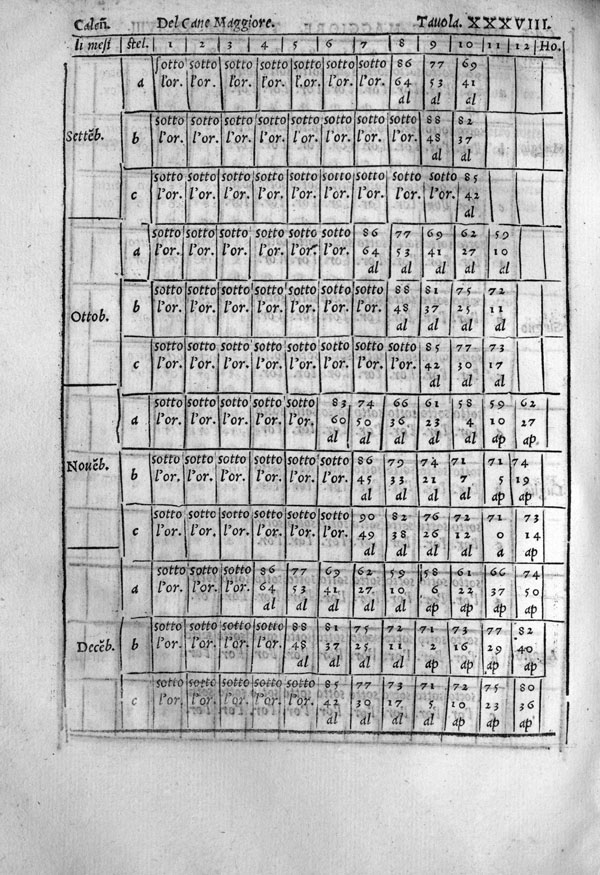 Caleñ. Del Cane Maggiore. Tauola. XXXVIII.
li mesi stel. 1 2 3 4 5 6 7 8 9 10 11 12 Ho.
sotto sotto sotto sotto sotto sotto sotto 86 77 69
a l'or. l'or. l'or. l'or. l'or. l'or. l'or. 64 53 41
al al al
sotto sotto sotto sotto sotto sotto sotto sotto 88 82
Settēb. b l'or. l'or. l'or. l'or. l'or. l'or. l'or. l'or. 48 37
al al
sotto sotto sotto sotto sotto sotto sotto sotto sotto 85
c l'or. l'or. l'or. l'or. l'or. l'or. l'or. l'or. l'or. 42
al
sotto sotto sotto sotto sotto sotto 86 77 69 62 59
a l'or. l'or. l'or. l'or. l'or. l'or. 64 53 41 27 10
al al al al al
sotto sotto sotto sotto sotto sotto sotto 88 81 75 72
Ottob. b l'or. l'or. l'or. l'or. l'or. l'or. l'or. 48 37 25 11
al al al al
sotto sotto sotto sotto sotto sotto sotto sotto 85 77 73
c l'or. l'or. l'or. l'or. l'or. l'or. l'or. l'or. 42 30 17
al al al
sotto sotto sotto sotto sotto 83 74 66 61 58 59 62
a l'or. l'or. l'or. l'or. l'or. 60 50 36 23 4 10 27
al al al al al ap ap
sotto sotto sotto sotto sotto sotto 86 79 74 71 71 74
Nouēb. b l'or. l'or. l'or. l'or. l'or. l'or. 45 33 21 7 5 19
al al al al ap ap
sotto sotto sotto sotto sotto sotto 90 82 76 72 71 73
c l'or. l'or. l'or. l'or. l'or. l'or. 49 38 26 12 0 14
al al al al a ap
sotto sotto sotto 86 77 69 62 59 58 61 66 74
a l'or. l'or. l'or. 64 53 41 27 10 6 22 37 50
al al al al al ap ap ap ap
sotto sotto sotto sotto 88 81 75 72 71 73 77 82
Decēb. b l'or. l'or. l'or. l'or. 48 37 25 11 2 16 29 40
al al al al ap ap ap ap
sotto sotto sotto sotto sotto 85 77 73 71 72 75 80
c l'or. l'or. l'or. l'or. l'or. 42 30 17 5 10 23 36
al al al al ap ap ap